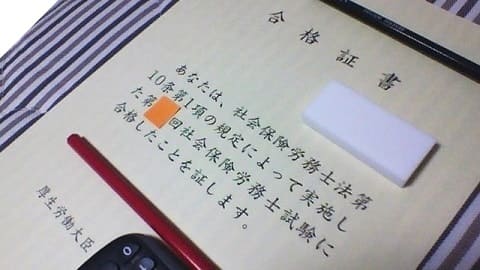 合格証書
あなたは、社会保険労務士法第
10条第1項の規定によって実施し
た第 回社会保険労務士試験に
合格したことを証します。
厚生労働大臣